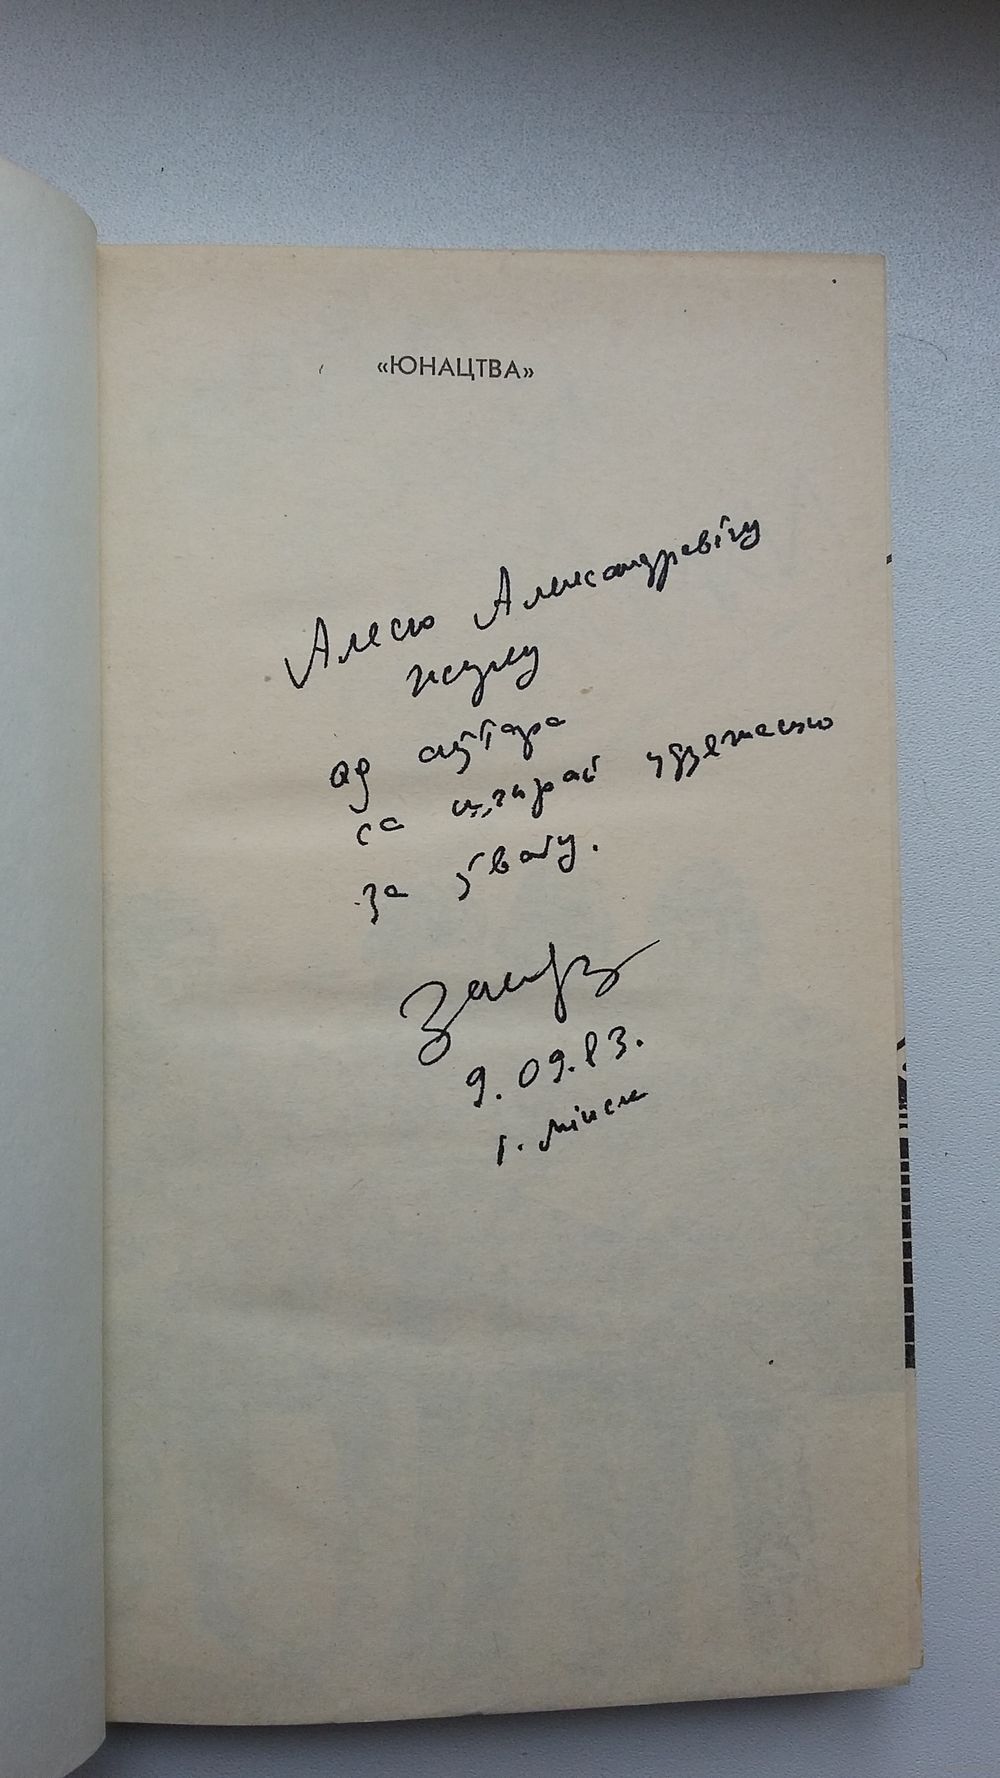 «ЮНАЦТВА»
Алесю Александравічу
Жуку
ад аўтара
са шчырай удзячнасцю
за ўвагу.
9.09.83.
г. Мінск